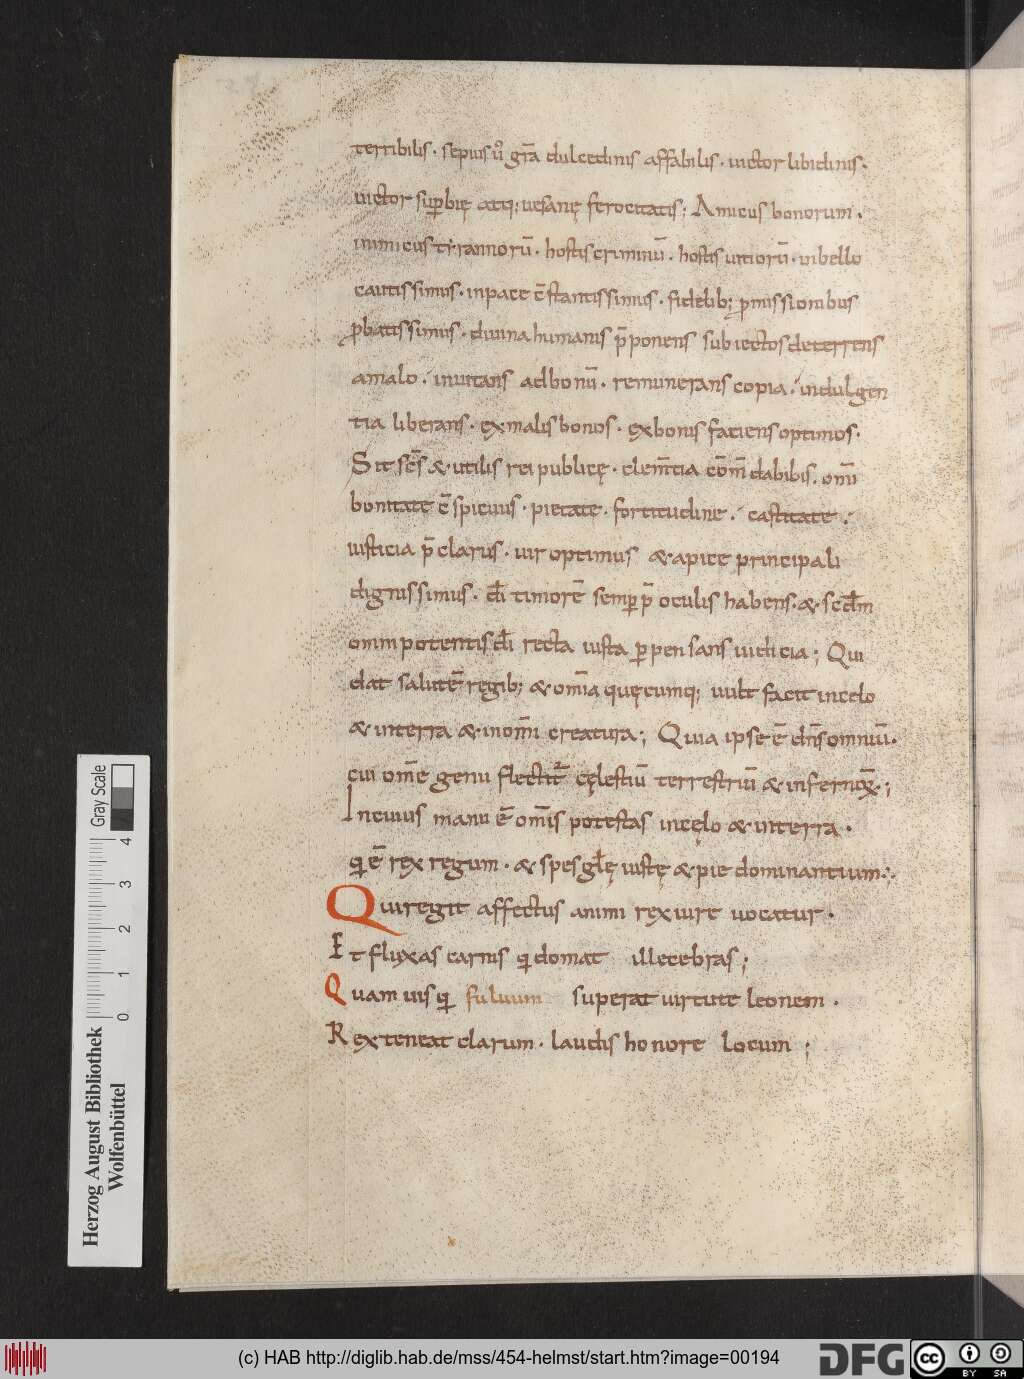 terribilis · sepius ů gr̄a dulcedinis affabilis · uictor libidinis ·
uictor suꝑbię atq; uesanę ferocitatis; Amicus bonorum ·
inimicus tẏrannorū · hostis criminū · hostis uitiorū · inbello
cautissimus · inpace c̄stantissimus · fidelib; ꝓmissionibus
ꝓbatissimus · diuina humanis p̄ponens subiectos deterrens
amalo · inuitans adbonū · remunerans copia · indulgen
tia liberans · exmalis bonos · exbonis faciens optimos ·
Sit sc̄s & utilis rei publicę · clem̄tia cōm̄dabilis · om̄i
bonitate c̄spicuus · pietate · fortitudine · castitate ·
iusticia p̄clarus · uir optimus & apice principali
dignissimus · dī timorē semꝑ p̄ oculis habens · & scd̄m
omnipotentis dī recta iusta ꝑpensans iudicia; Qui
dat salutē regib; & om̄ia quęcumq; uult facit incęlo
& interra & inom̄i creatura; Quia ipse ē dn̄s omniuū ·
cui om̄e genu flectit᷑ cęlestiū terrestriū & infernoꝝ ·;
Incuius manu ē om̄is potestas incęlo & interra ·
qi ē rex regum · & spes gl̄ę iustę & pie dominantium :·
Qui regit affectus animi rex iure uocatur ·
Et fluxas carnis qi domat illecebras;
Quam uis qi fuluum superat uirtute leonem ·
Rex teneat clarum · laudis honore locum ;
Herzog August Bibliothek
Wolfenbüttel
0 1 2 3 4
Gray Scale
(c) HAB http://diglib.hab.de/mss/454-helmst/start.htm?image=00194
DFG
cc BY SA